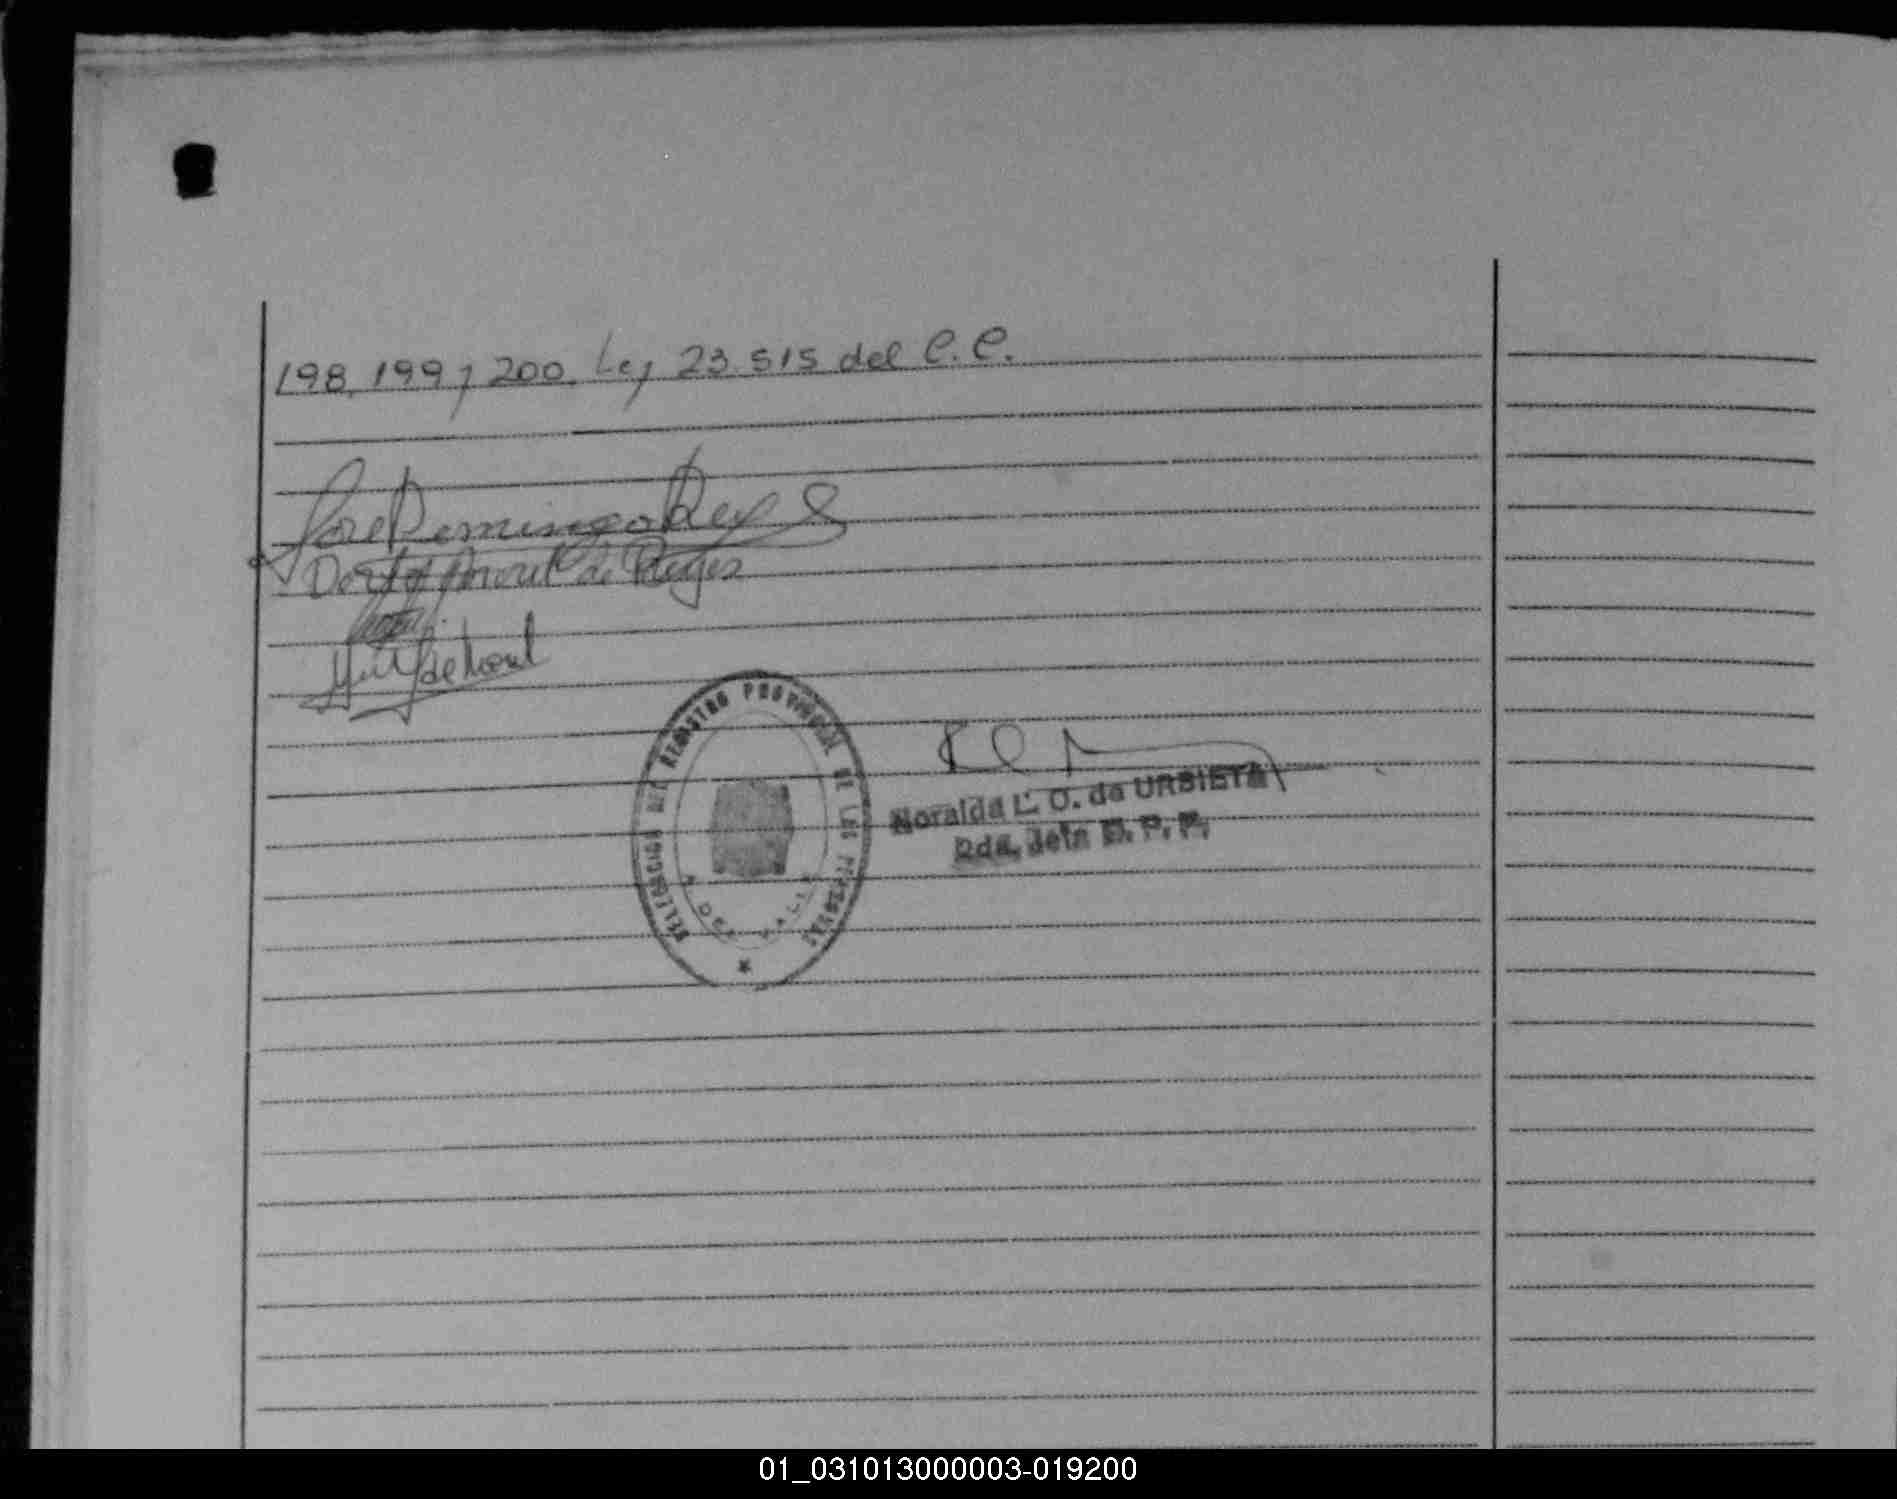 198, 199 y 200. Ley 23.515 del C.C.
Jose Domingo Rey
de Reyes
DELEGACION DEL REGISTRO PROVINCIAL DE LAS PERSONAS
DEL VALLE
Noralda L. O. de URBIETA
Eda. Jefa D. P. P.
01_031013000003-019200